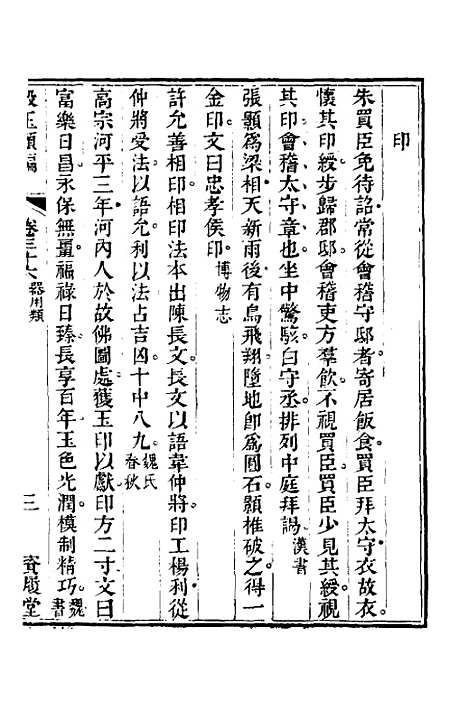 印
朱買臣免待詔常從會稽守邸者寄居飯食買臣拜太守衣故衣
懷其印綬步歸郡邸會稽吏方羣飲不視買臣買臣少見其綬視
其印會稽太守章也坐中驚駭白守丞排列中庭拜謁漢書
張顥爲梁相天新雨後有鳥飛翔墮地卽爲圓石顥椎破之得一
金印文曰忠孝侯印博物志
許允善相印相印法本出陳長文長文以語韋仲將印工楊利從
仲將受法以語允利以法占吉凶十中八九魏氏春秋
高宗河平三年河內人於故佛圖處獲玉印以獻印方二寸文曰
富樂日昌永保無疆福祿日臻長享百年玉色光潤模制精巧魏書
類編 卷三十六器用類 三 履堂